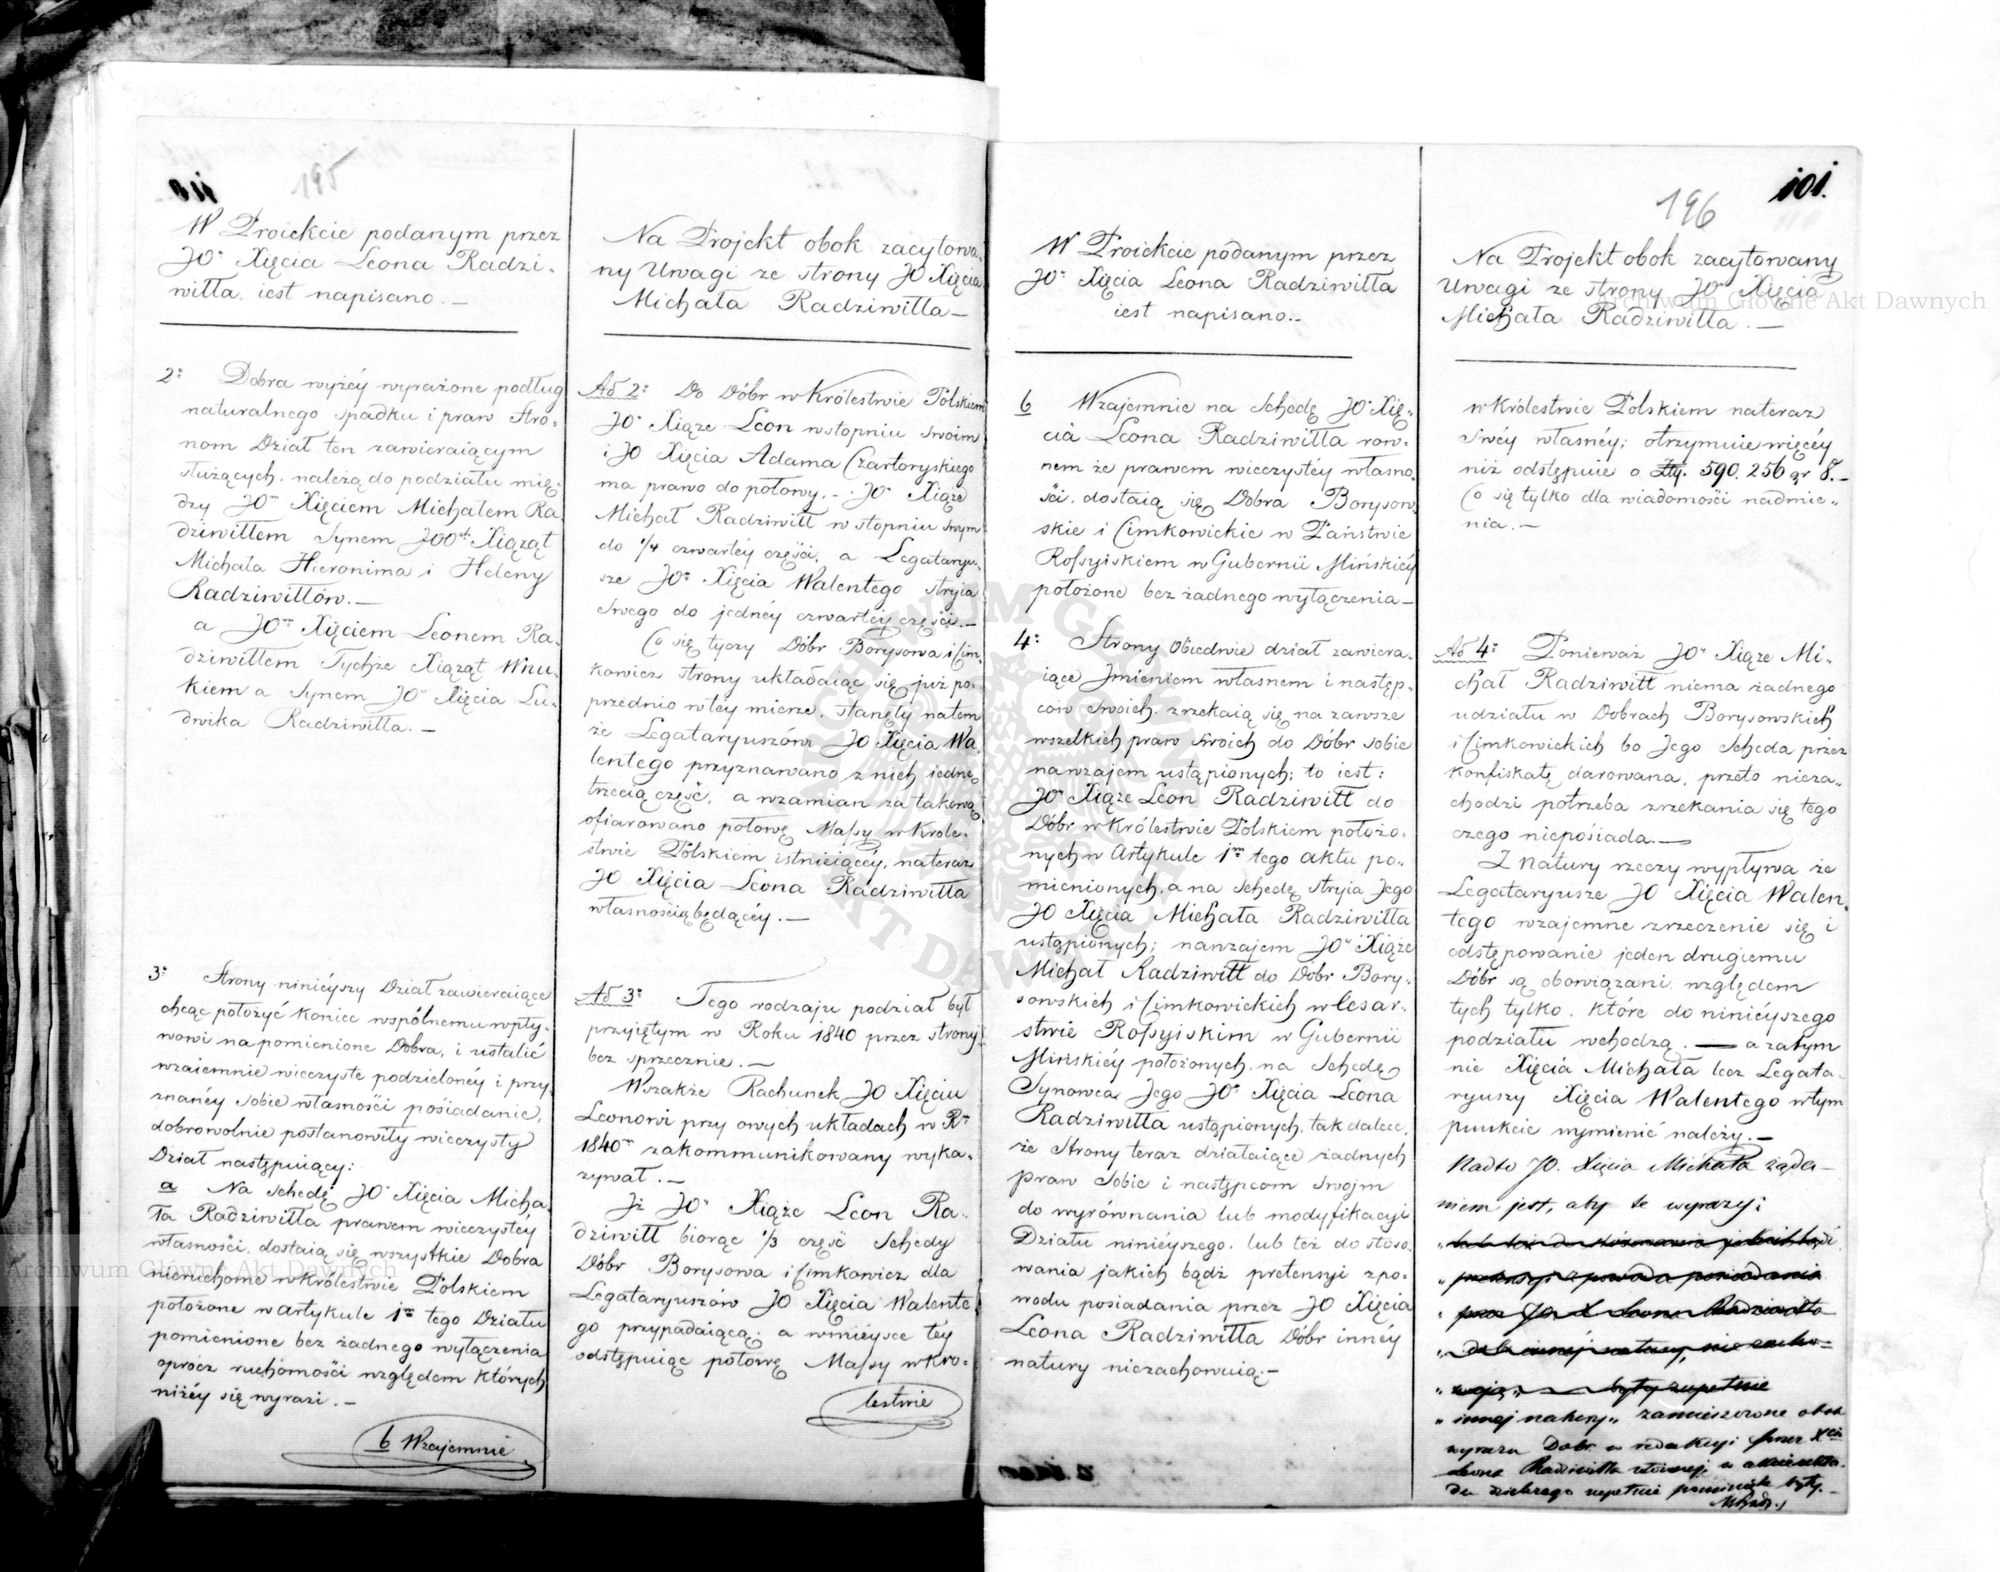 195
W Proiekcie podanym przez
JO: Xięcia Leona Radzi-
wiłła iest napisano. —
2: Dobra wyżéy wyrażone podług
naturalnego spadku i praw Stro-
nom Dział ten zawieraiącym
służących, należą do podziału mię-
dzy JO Xięciem Michałem Ra-
dziwiłłem Synem Xiąząt
Michała Hieronima i Heleny
Radziwiłłów. —
a JO Xięciem Leonem Ra-
dziwiłłem Tychże Xiąząt Wnu-
kiem a Synem JO Xięcia Lu-
dwika Radziwiłła. —
3: Strony ninieyszy Dział zawieraiące
chcąc położyć koniec wspólnemu wpły-
wowi na pomienione Dobra, i ustalić
wzaiemnie wieczyste podzielonéy i przy-
znanéy sobie własności posiadanie,
dobrowolnie postanowiły wieczysty
Dział następuiący:
a Na Schedę JO Xięcia Micha-
ła Radziwiłła prawem wieczystey
własności, dostaią się wszystkie Dobra
nieruchome w Królestwie Polskiem
położone w Artykule 1m tego Działu
pomienione bez żadnego wyłączenia
oprócz ruchomości względem których
niżéy się wyrazi. —
b Wzajemnie
Na Projekt obok zacytowa-
ny Uwagi ze strony JO Xięcia
Michała Radziwiłła —
Ad 2: Do Dóbr w Królestwie Polskiem
JO Xiąże Leon w stopniu swoim
i JO Xięcia Adama Czartoryskiego
ma prawo do połowy. - JO Xiąże
Michał Radziwiłł w stopniu swym
do 1/4 czwartéy części, a Legataryu-
sze JO: Xięcia Walentego stryia
swego do jednéy czwartéy części. —
Co się tyczy Dóbr Borysowa i Cim-
kowicz strony układaiąc się już po-
przednio w téy mierze, stanęły na tem
że Legataryuszów JO Xięcia Wa-
lentego przyznawano z nich iednę
trzecią część, a wzamian za takową
ofiarowano połowę Massy w Króle-
stwie Polskiem istnieiącéy, nateraz
JO Xięcia Leona Radziwiłła
własnością będącéy. —
Ad 3: Tego rodzaju podział był
przyiętym w Roku 1840 przez strony
bez sprzecznie. —
Wszakże Rachunek JO Xięciu
Leonowi przy owych układach w Rn
1840m zakommunikowany wyka-
zywał. —
Iż JO Xiąże Leon Ra-
dziwiłł biorąc 1/3 część Schedy
Dóbr Borysowa i Cimkowicz dla
Legataryuszów JO Xięcia Walente
go przypadaiącą, a w mieysce téy
odstępuiąc połowę Massy w Kró-
lestwie
196
101.
W Proiekcie podanym przez
JO: Xięcia Leona Radziwiłła
iest napisano. —
b Wzajemnie na Schedę JO Xię-
cia Leona Radziwiłła row-
nem że prawem wieczystéy własno-
ści, dostaią się Dobra Borysow-
skie i Cimkowickie w Państwie
Rossyiskiem w Gubernii Mińskiéy
położone bez żadnego wyłączenia —
4: Strony Obiedwie dział zawiera-
iące Jmieniem własnem i następ-
ców swoich, zrzekaią się na zawsze
wszelkich praw swoich do Dóbr sobie
nawzajem ustąpionych; to iest:
JO Xiąże Leon Radziwiłł do
Dóbr w Królestwie Polskiem położo-
nych w Artykule 1m tego aktu po-
mienionych, a na Schedę stryia Jego
JO Xięcia Michała Radziwiłła
ustąpionych; nawzajem JO Xiąże
Michał Radziwiłł do Dobr Bory-
sowskich i Cimkowickich w Cesar-
stwie Rossyiskim w Gubernii
Mińskiéy położonych, na Schedę
Synowca Jego JO Xięcia Leona
Radziwiłła ustąpionych, tak dalece,
że Strony teraz działaiące żadnych
praw Sobie i następcom Swojm
do wyrównania lub modyfikacyi
Działu ninieyszego, lub też do stoso-
wania jakich bądź pretensyi z po-
wodu posiadania przez JO Xięcia
Leona Radziwiłła Dóbr innéy
natury niezachowuią. —
Na Projekt obok zacytowany
Uwagi ze strony JO Xięcia
Michała Radziwiłła. —
w Królestwie Polskiem nateraz
Swéy własnéy; otrzymuie więcéy
niż odstępuie o Złp. 590.256 gr 8. —
Co się tylko dla wiadomości nadmie-
nia. —
Ad 4: Ponieważ JO Xiąże Mi-
chał Radziwiłł niema żadnego
udziału w Dobrach Borysowskich
i Cimkowickich bo Jego Scheda przez
konfiskatę darowana, przeto nieza-
chodzi potrzeba zrzekania się tego
czego nieposiada. —
Z natury rzeczy wypływa że
Legataryusze JO Xięcia Walen-
tego wzajemne zrzeczenie się i
odstępowanie jeden drugiemu
Dóbr są obowiązani względem
tych tylko, które do ninieyszego
podziału wchodzą. — a zatym
nie Xięcia Michała lecz Legata-
ryuszy Xięcia Walentego w tym
punkcie wymienić należy. —
Nadto JO. Xięcia Michała żąda-
niem jest, aby te wyrazy:
„lub też do stosowania jakich bądź
„pretensyi z powodu posiadania
„przez JO. X Leona Radziwiłła
„Dóbr innéj natury, nie zacho-
„wują„ — były zupełnie
„innej natury„ zamieszczone obok
wyrazu Dobr w redakcyi przez Xcia
Leona Radziwiłła
zupełnie pominięte były. —
Archiwum Główne Akt Dawnych
Archiwum Główne Akt Dawnych
ARCHIWUM GŁÓWNE AKT DAWNYCH